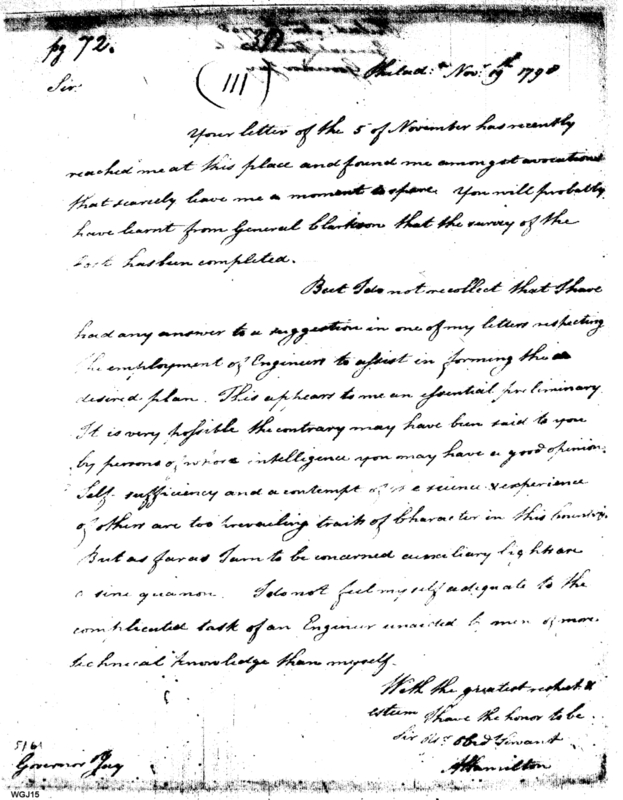 pg 72.
(111)
Philad:a Nov.r 19th 1798
Sir.
Your letter of the 5 of November has recently
reached me at this place and found me amongst avocations
that scarcely leave me a moment to spare. You will probably
have learnt from General Clarkson that the survey of the
Port has been completed.
But I do not recollect that I have
had any answer to a suggestion in one of my letters respecting
the employment of Engineers to assist in forming the
desired plan. This appears to me an essential preliminary.
It is very possible the contrary may have been said to you
by persons of whose intelligence you may have a good opinion.
Self sufficiency and a contempt of the science & experience
of others are too prevailing traits of Character in this Country.
But as far as I am to be concerned auxiliary lights are
a sine qua non. I do not feel myself adequate to the
complicated task of an Engineer unaided by men of more
technical knowledge than myself.
With the greatest respect &
esteem I have the honor to be.
Sir Obed Servant
A Hamilton
Governor Jay
WGJ15